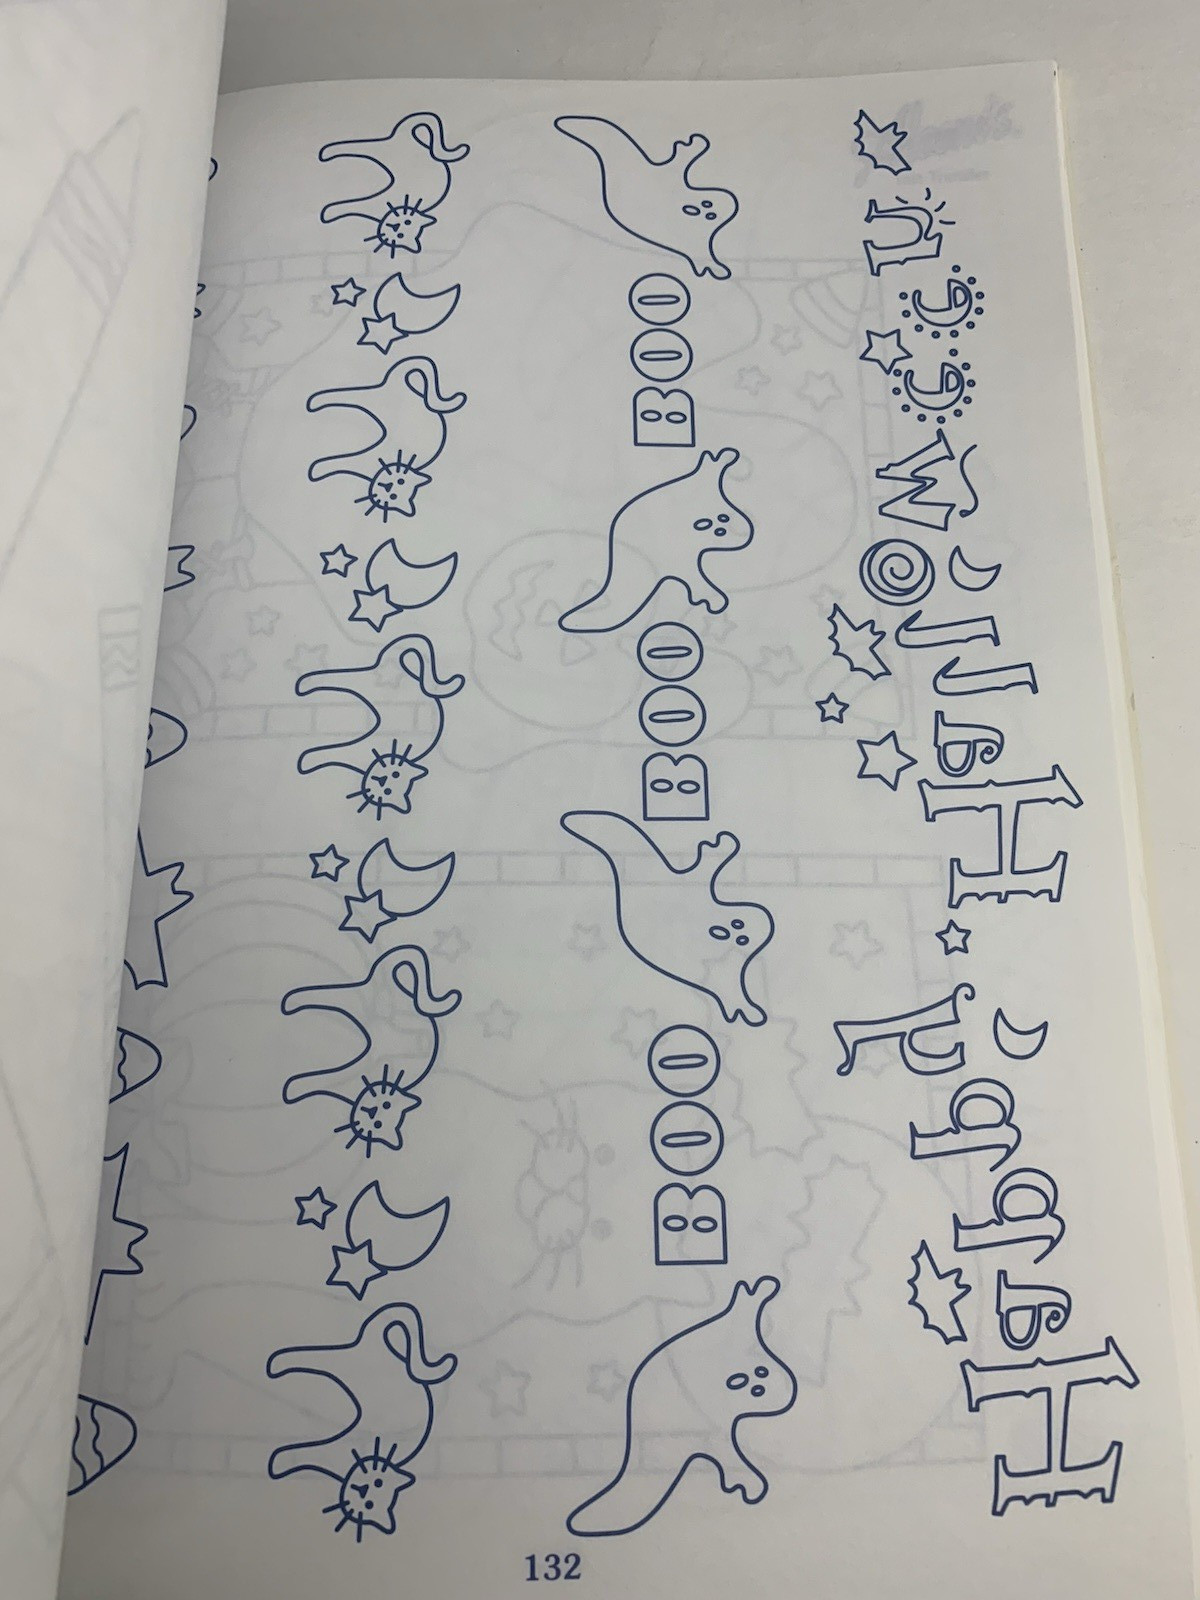 Happy Halloween
BOO BOO BOO
132